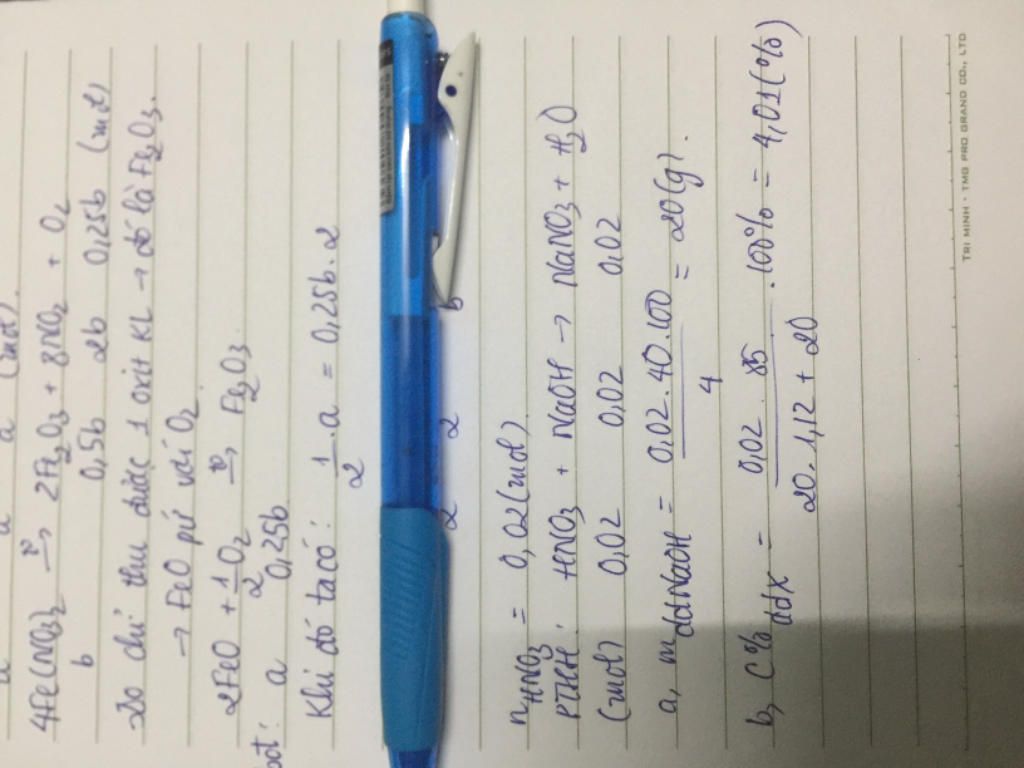 a a a (mol).
4Fe(NO3)2 t° → 2Fe2O3 + 8NO2 + O2
b 0,5b 2b 0,25b (mol)
Do chỉ thu được 1 oxit KL → đó là Fe2O3.
→ FeO pứ với O2.
2FeO + 1/2 O2 t° → Fe2O3
a 0,25b
Khi đó ta có: 1/2 . a = 0,25b.2
2 2 b
nHNO3 = 0,02(mol)
PTHH: HNO3 + NaOH → NaNO3 + H2O
(mol) 0,02 0,02 0,02
a, mddNaOH = 0,02.40.100/4 = 20(g).
b, C%ddX = 0,02 . 85/20.1,12 + 20 .100% = 4,01(%)
TRI MINH - TMG PRO GRAND CO., LTD